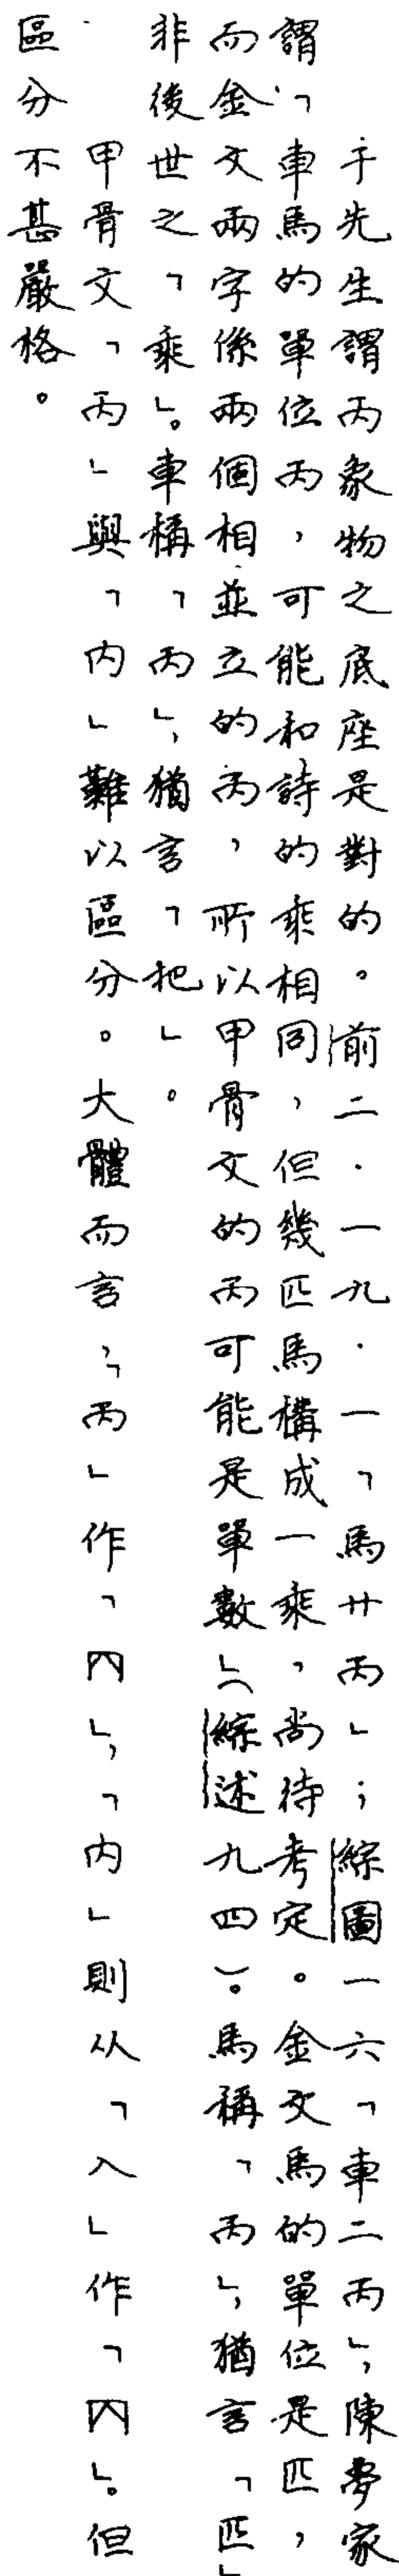 于先生謂丙象物之底座是對的。前二．一九．一「馬廿丙」；綜圖一六「車二丙」，陳夢家
謂「車馬的單位丙，可能和詩的乘相同，但幾匹馬構成一乘，尚待考定。金文馬的單位是匹，
而金文兩字係兩個相並立的丙，所以甲骨文的丙可能是單數」（綜述九四）。馬稱「丙」，猶言「匹」
非後世之「乘」。車稱「丙」，猶言「把」。
甲骨文「丙」與「内」難以區分。大體而言，「丙」作「」，「内」則从「入」作「」。但
區分不甚嚴格。